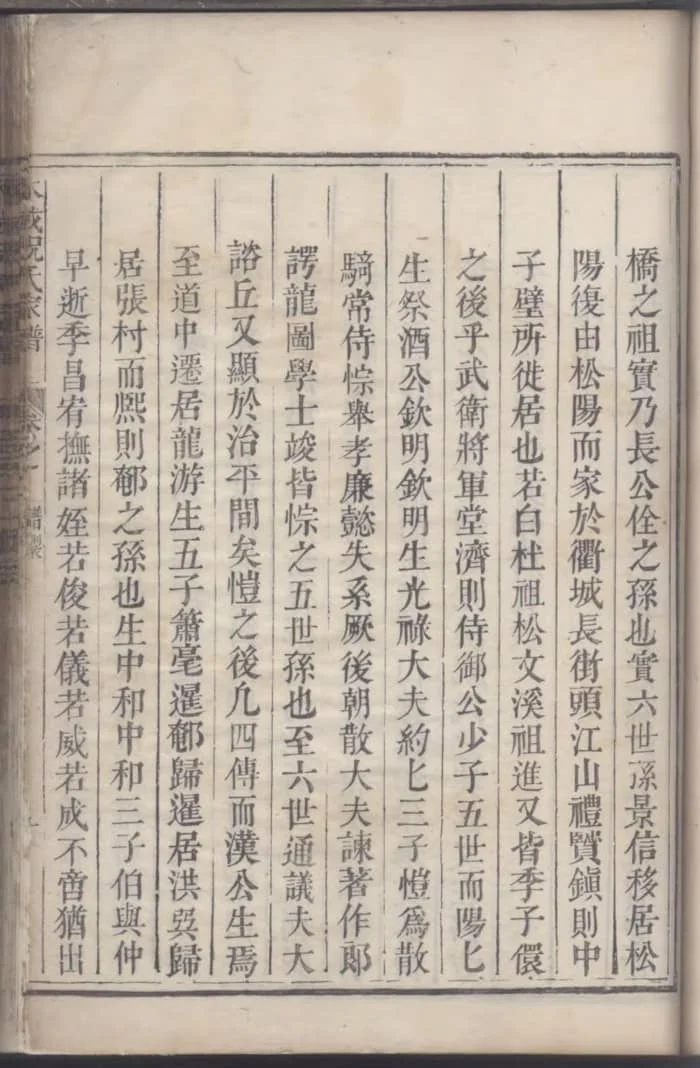 橋之祖實乃長公佺之孫也實六世孫景信移居松
陽復由松陽而家於衢城長街頭江山禮賢鎭則中
子壁所徙居也若白杜祖松文溪祖進又皆季子儇
之後乎武衛將軍堂濟則侍御公少子五世而陽匕
生祭酒公欽明欽明生光祿大夫約匕三子愷爲散
騎常侍悰舉孝廉懿失系厥後朝散大夫諫著作郎
諤龍圖學士竣皆悰之五世孫也至六世通議夫大
諮丘又顯於治平間矣愷之後凢四傳而漢公生焉
至道中遷居龍游生五子簫亳暹郁歸暹居洪㕦歸
居張村而熈則郁之孫也生中和中和三子伯與仲
早逝季昌宥撫諸姪若俊若儀若威若成不啻猶出
祝氏家譜